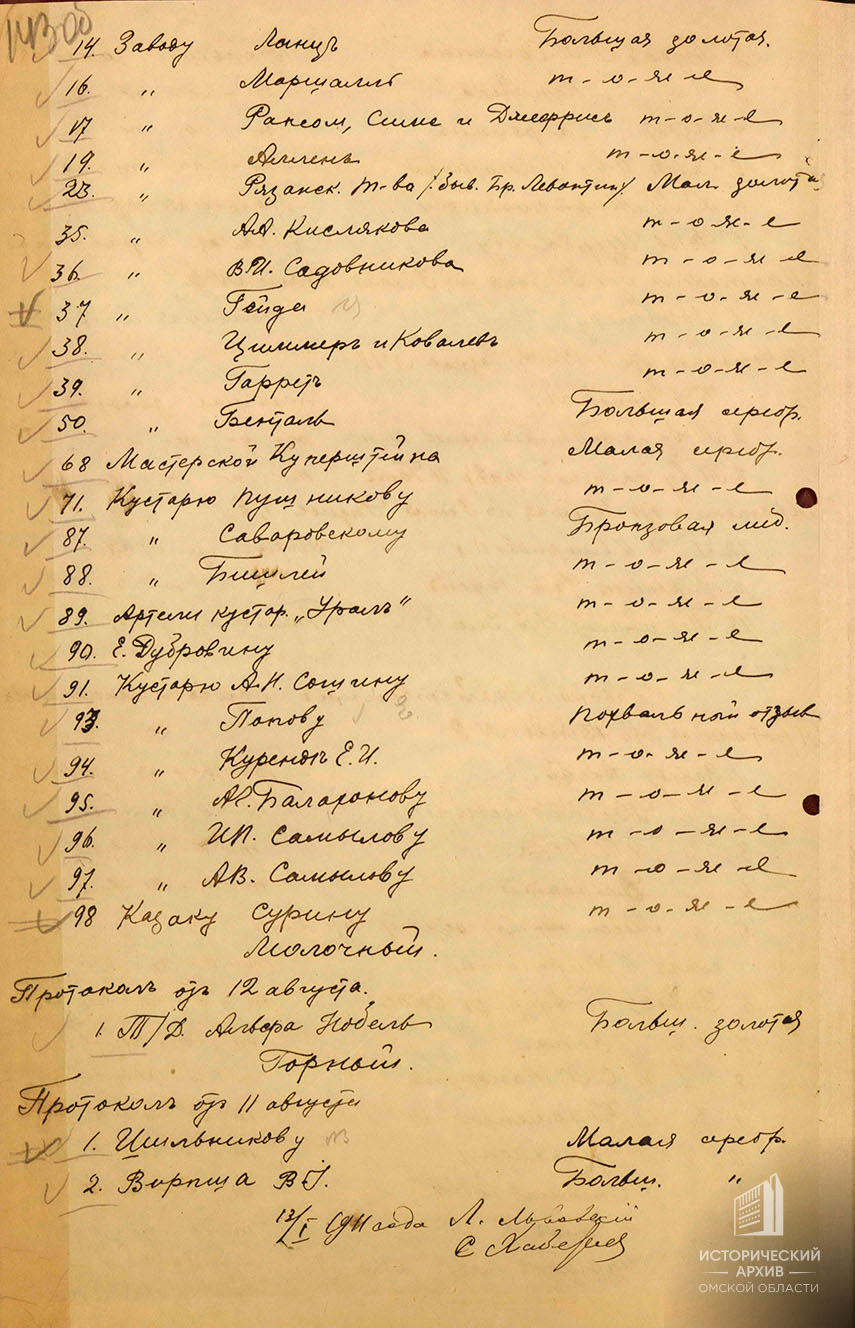 143 об
14. Заводу Ланцъ Большая золотая.
16. „ Маршаллъ т-о-ж-е
17 „ Рансом, Симс и Джеффрисъ т-о-ж-е
19. „ Алленъ т-о-ж-е
23. „ Рязанск. т-ва /: быв. бр. Левонтин :/ Мал. золотая
35. „ А.А. Кислякова т-о-ж-е
36. „ В.И. Садовникова т-о-ж-е
37 „ Гейде т-о-ж-е
38. „ Циммеръ и Ковалевъ т-о-ж-е
39. „ Гарретъ т-о-ж-е
50. „ Бенталь Большая серебр.
68 Мастерской Куперштейна Малая серебр.
71. Кустарю Пушникову т-о-ж-е
87. „ Саваровскому Бронзовая мед.
88. „ т-о-ж-е
89. Артели кустар. „Уралъ" т-о-ж-е
90. Е. Дубровину т-о-ж-е
91. Кустарю А.И. Сошину т-о-ж-е
93. „ Попову похвальный отзыв
94. „ Е.И. т-о-ж-е
95. „ Балахонову т-о-ж-е
96. „ И.П. Самылову т-о-ж-е
97. „ А.В. Самылову т-о-ж-е
98 Казаку Сурину т-о-ж-е
Молочный.
Протоколъ отъ 12 августа.
1. Т/Д. Альфа Нобель Больш. золотая
Горный.
Протоколъ отъ 11 августа
1. Шильникову Малая серебр.
2. В.І. Больш. „
1911 года Л.
С.
ИСТОРИЧЕСКИЙ
АРХИВ
ОМСКОЙ ОБЛАСТИ